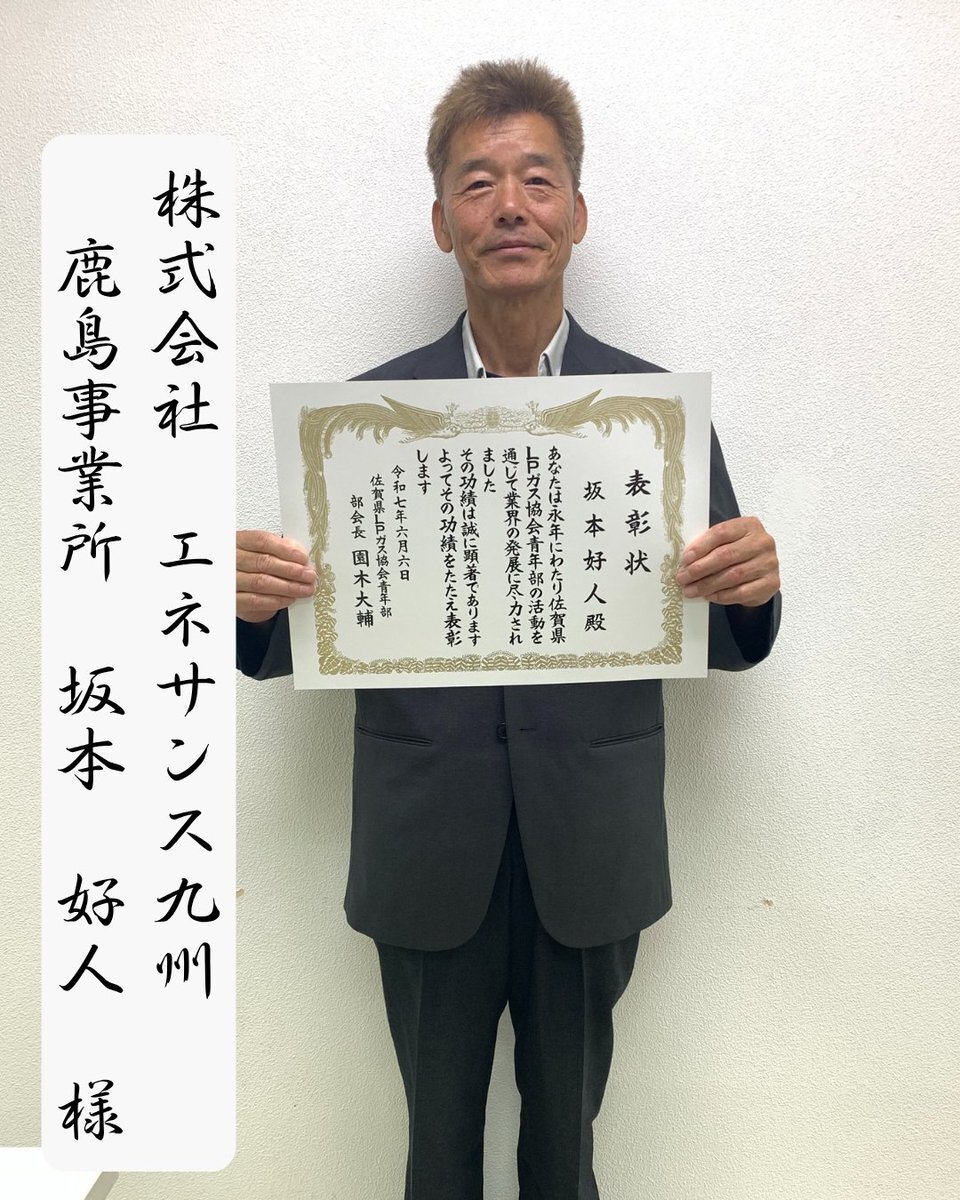 株式会社 エネサンス九州
鹿島事業所 坂本 好人 様
表彰状
坂本好人殿
あなたは永年にわたり佐賀県
LPガス協会青年部の活動を
通じて業界の発展に尽力され
ました
その功績は誠に顕著であります
よってその功績をたたえ表彰
します
令和七年六月六日
佐賀県LPガス協会青年部
部会長 園木大輔